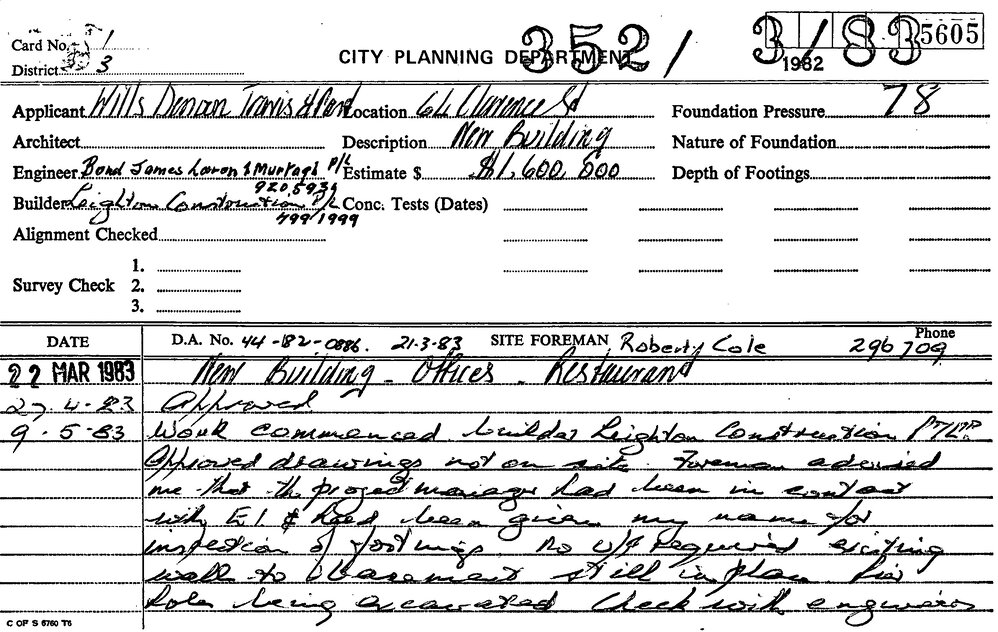 Card No. 1
District 3
CITY PLANNING DEPARTMENT
352/
3/83
1982
5605
Applicant Wills Denoon Travis & Location 64 Clarence St Foundation Pressure 78
Architect Description New Building Nature of Foundation
Engineer Bond James Laron & Murtagh P/L Estimate $ $1,600,000 Depth of Footings
920,5939
Builder Leighton Construction P/L Conc. Tests (Dates)
499/1999
Alignment Checked
Survey Check 1.
2.
3.
DATE D.A. No. 44-82-0886. 21-3-83 SITE FOREMAN Robert Cole Phone 296709
22 MAR 1983 New Building - Offices - Restaurant
27.4.83 Approved
9.5.83 Work commenced builder Leighton Construction
Approved drawings not on site. Foreman advised
me that the project manager had been in contact
with E1 & had been given my name for
inspection of footings. No required existing
wall to basement still in place. Pier
holes being excavated Check with engineers
C OF S 6760 T6